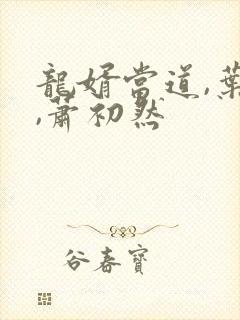 龍婿當道,葉
,蕭初然
谷春寶